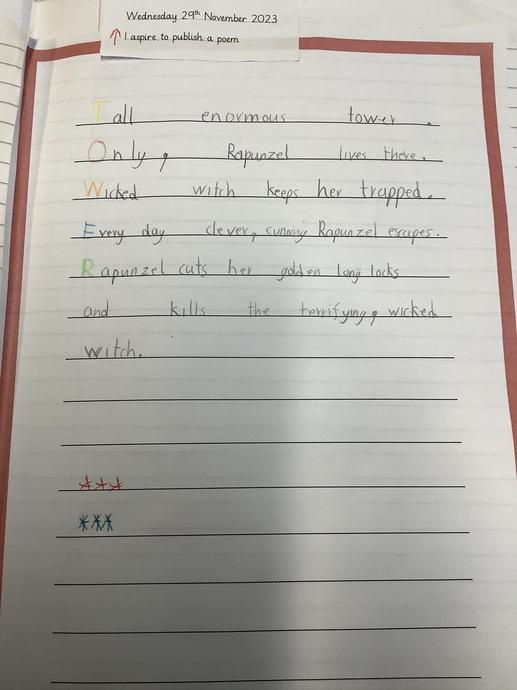 Wednesday 29th November 2023
↑ I aspire to publish a poem
Tall enormous tower.
Only, Rapunzel lives there.
Wicked witch keeps her trapped.
Every day clever, cunning Rapunzel escapes.
Rapunzel cuts her golden long locks
and kills the terrifying, wicked
witch.